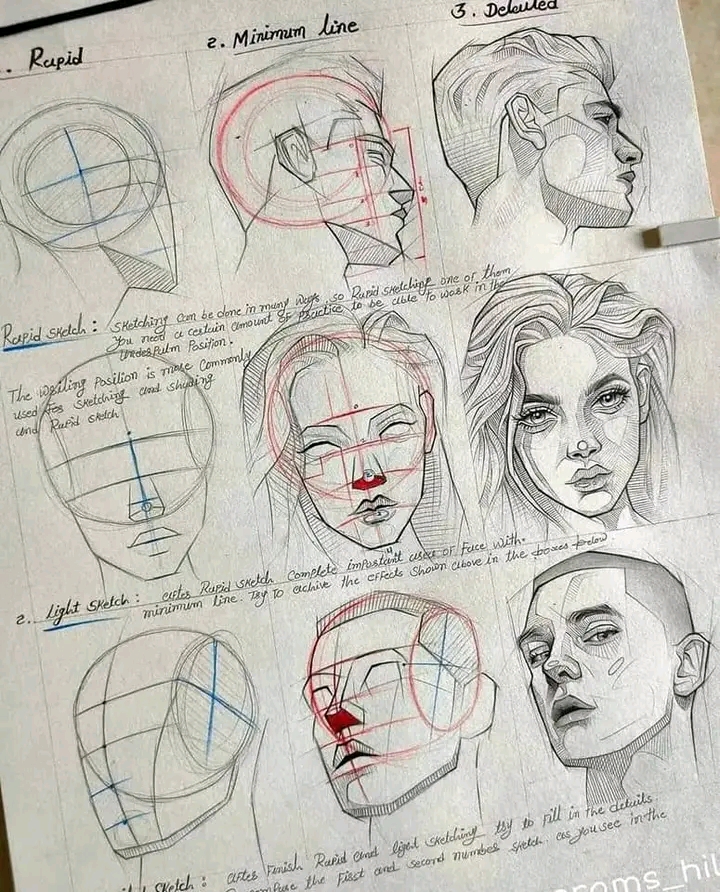 . Rapid
2. Minimum line
3. Detailed
Rapid sketch : Sketching can be done in many ways, so Rapid sketching one of them
You need a certain amount of practice to be able to work in the
Underpalm Position.
The Writing Position is more Commonly
used for sketching and shading
and Rapid sketch
2. Light Sketch : after Rapid sketch Complete important of Face with.
minimum line. Try to achive the effects shown above in the boxes below
Sketch : after Finish Rapid and light sketching try to fill in the details
the First and second number sketch. as you see in the